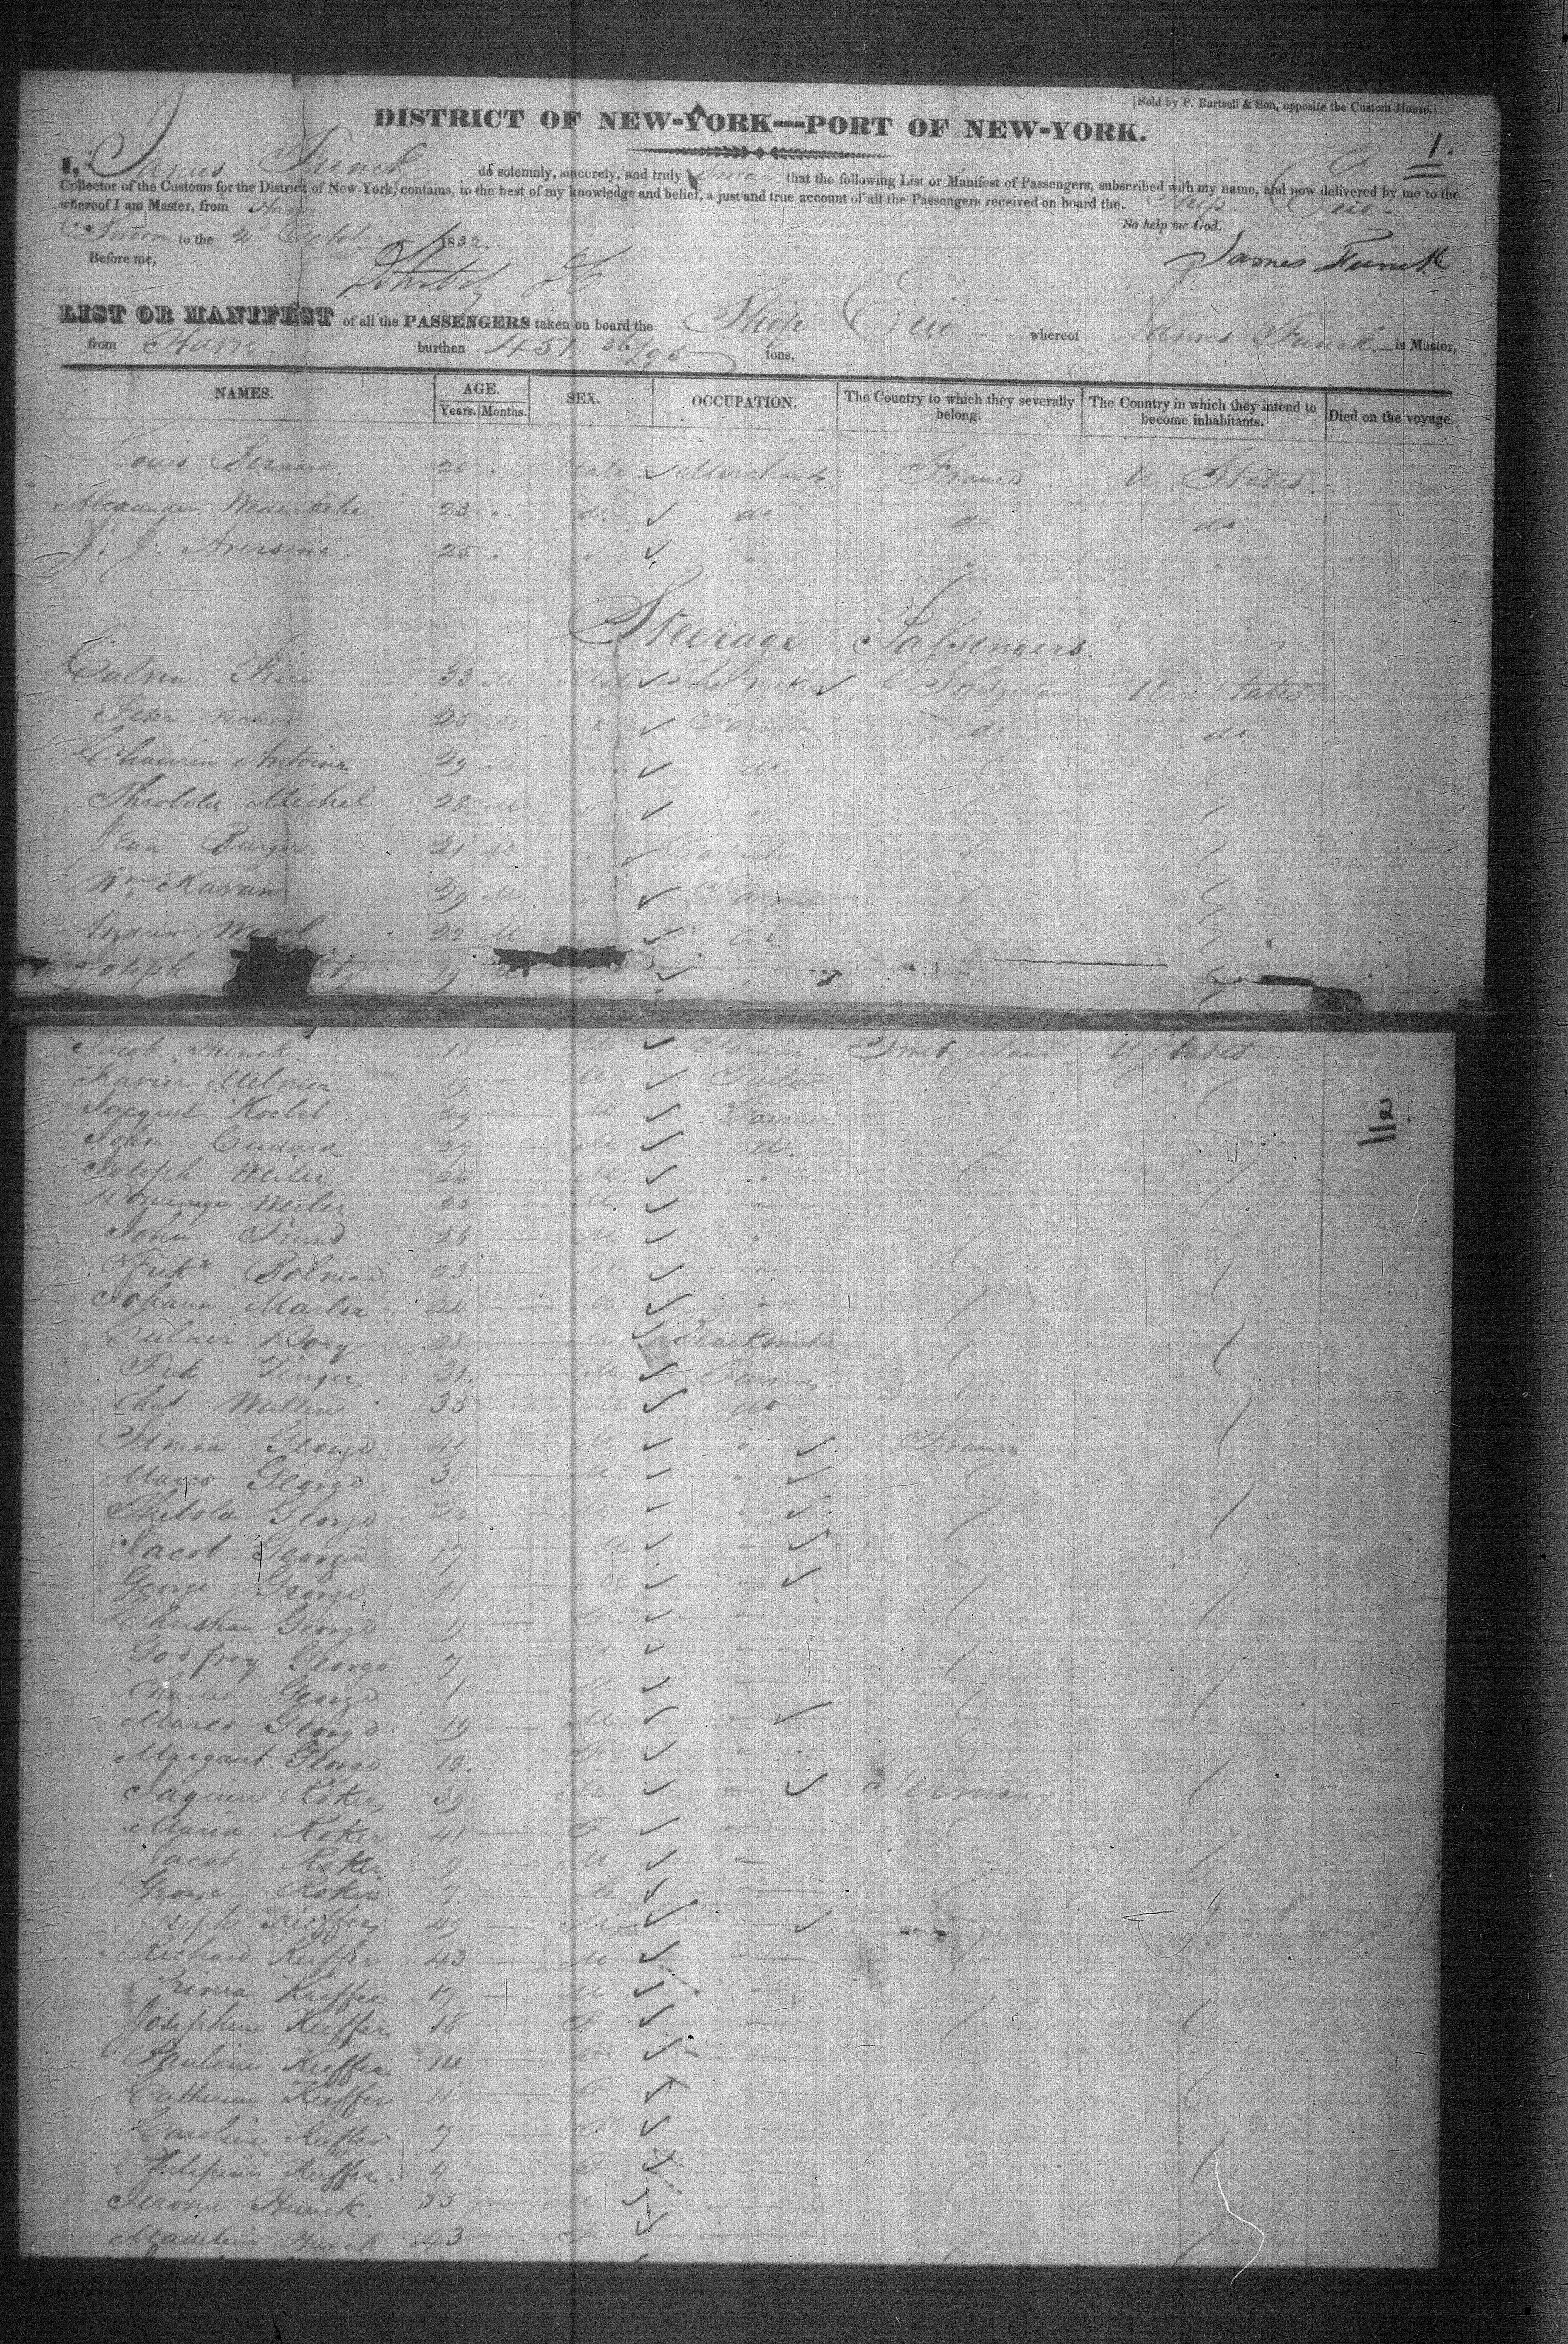 [Sold by P. Bartsell & Son, opposite the Custom-House.]
DISTRICT OF NEW-YORK—PORT OF NEW-YORK.
1.
I, James Funck do solemnly, sincerely, and truly Swear that the following List or Manifest of Passengers, subscribed with my name, and now delivered by me to the
Collector of the Customs for the District of New-York, contains, to the best of my knowledge and belief, a just and true account of all the Passengers received on board the Ship Erie
whereof I am Master, from Havre
So help me God.
Sworn to the 2d October 1832.
James Funck
Before me,
LIST OR MANIFEST of all the PASSENGERS taken on board the Ship Erie whereof James Funck is Master,
from Havre. burthen 451 36/95 tons,
NAMES. AGE. Years. Months. SEX. OCCUPATION. The Country to which they severally belong. The Country in which they intend to become inhabitants. Died on the voyage.
Louis Bernard. 25 Male Merchant France U States.
Alexander 23 do do do do
J. J. 25 " " " "
Steerage Passengers.
Calvin 33 M Male Shoe maker Switzerland U States
Peter 25 M " Farmer do do
Antoine 29 M " do
Michel 28 M " "
Jean Burger. 21 M " Carpenter
Wm Kavan 29 M " Farmer
Andrew 22 M do
Joseph 19 M "
Jacob Hunck. 18 M Farmer Switzerland U States
Xavier Melmer 19 M Tailor
Jacques Koebel 29 M Farmer
John Cudard 27 M do.
Joseph Weiler 24 M "
Weiler 25 M "
John 26 M "
Fredk Bolman 23 M "
Johann Marler 24 M "
28 M Blacksmith
Fred Zinger 31. M Farmer
Chas Walter 35 M do
Simon George 49 M " France
George 38 M "
Thebold George 20 M "
Jacob George 17 M "
George George 11 M "
Christian George 9 F "
Godfrey George 7 M "
Charles George 1 M "
Marco George 19 M "
Margaret George 10. F "
Roker 39 M " Germany
Maria Roker 41 F "
Jacob Roker 9 M "
George Roker 7 M
Joseph Kieffer 49 M
Richard Kieffer 43 M
Kieffer 17 M
Josephine Kieffer 18 F
Pauline Kieffer 14 F
Catherine Kieffer 11 F
Caroline Kieffer 7 F
Kieffer. 4 F
Jerome Hunck. 55 M
Madeline Hunck 43 F